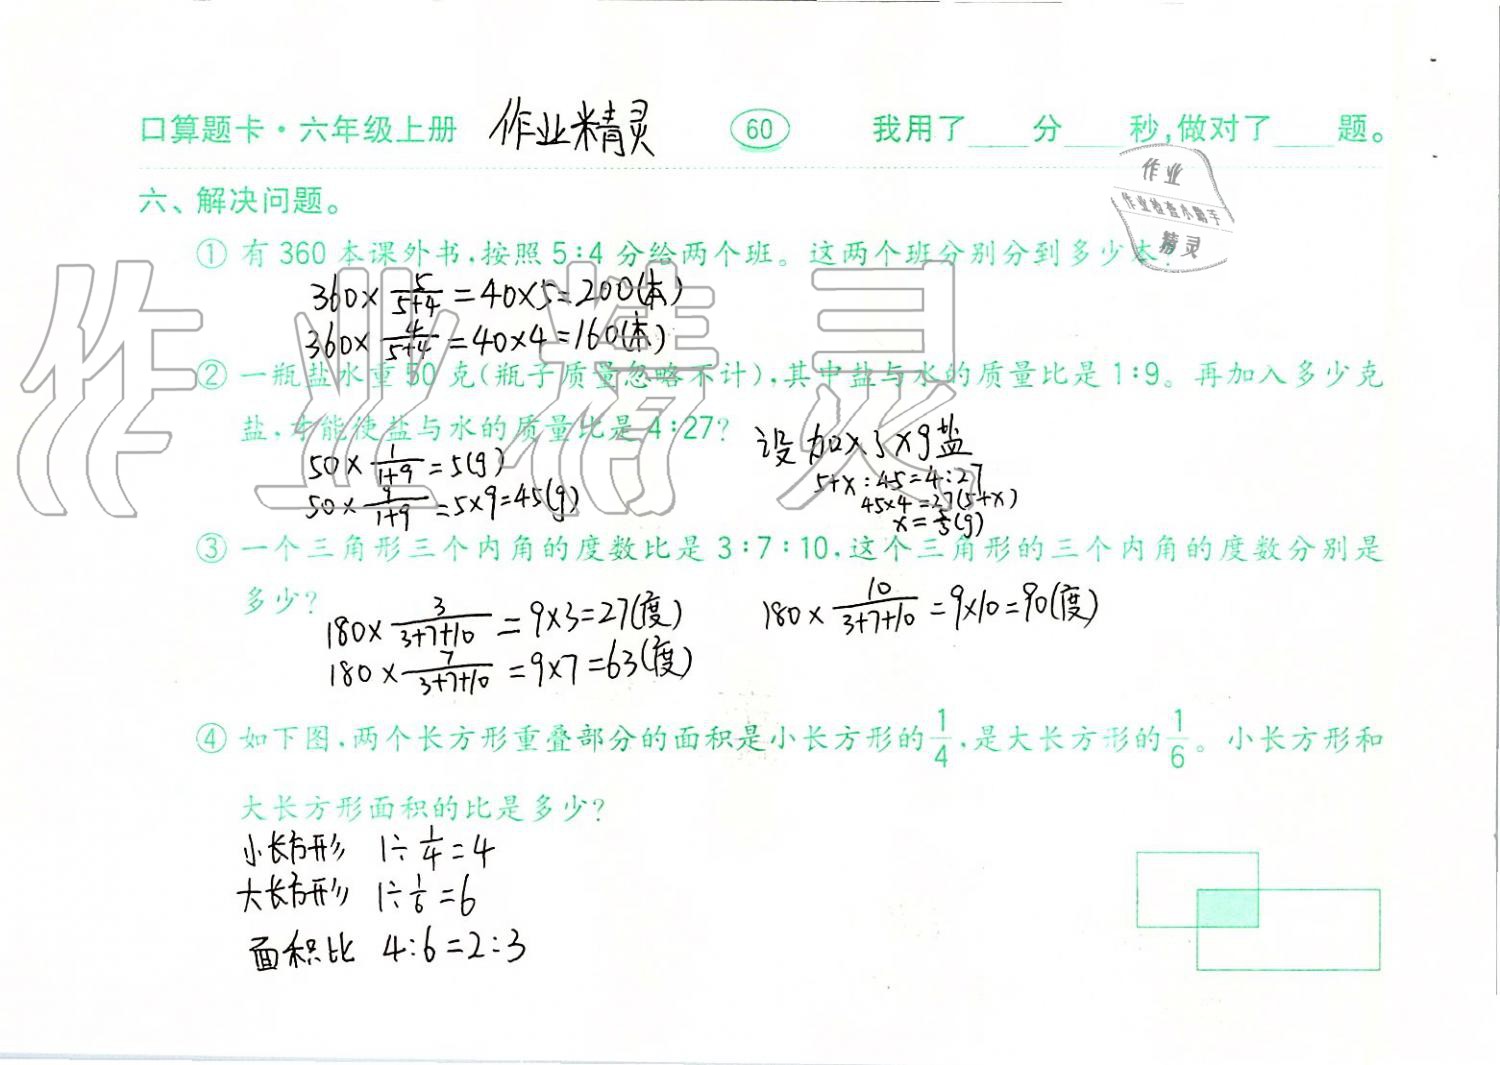 口算题卡·六年级上册 作业精灵 60 我用了____分____秒,做对了____题。
作业
作业检查小助手
精灵
六、解决问题。
① 有360本课外书,按照5:4分给两个班。这两个班分别分到多少本?
360×5/(5+4)=40×5=200(本)
360×4/(5+4)=40×4=160(本)
作业精灵
② 一瓶盐水重50克(瓶子质量忽略不计),其中盐与水的质量比是1:9。再加入多少克
盐,才能使盐与水的质量比是4:27?
设加入
50×1/(1+9)=5(g)
5+x:45=4:27
50×9/(1+9)=5×9=45(g)
45×4=27(5+x)
x=5/3(g)
③ 一个三角形三个内角的度数比是3:7:10,这个三角形的三个内角的度数分别是
多少?
180×3/(3+7+10)=9×3=27(度) 180×10/(3+7+10)=9×10=90(度)
180×7/(3+7+10)=9×7=63(度)
④ 如下图,两个长方形重叠部分的面积是小长方形的1/4,是大长方形的1/6。小长方形和
大长方形面积的比是多少?
小长方形 1÷1/4=4
大长方形 1÷1/6=6
面积比 4:6=2:3